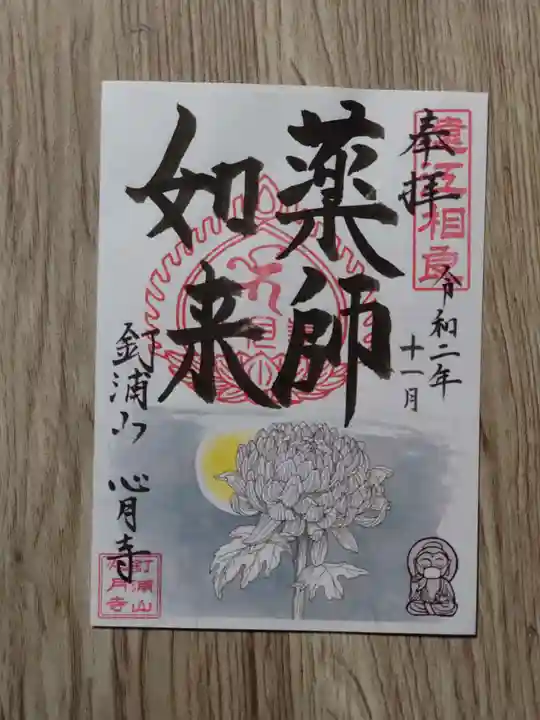 奉拝
遠江相良
令和二年
十一月
薬師
如来
釘浦山 心月寺
釘浦山
心月寺